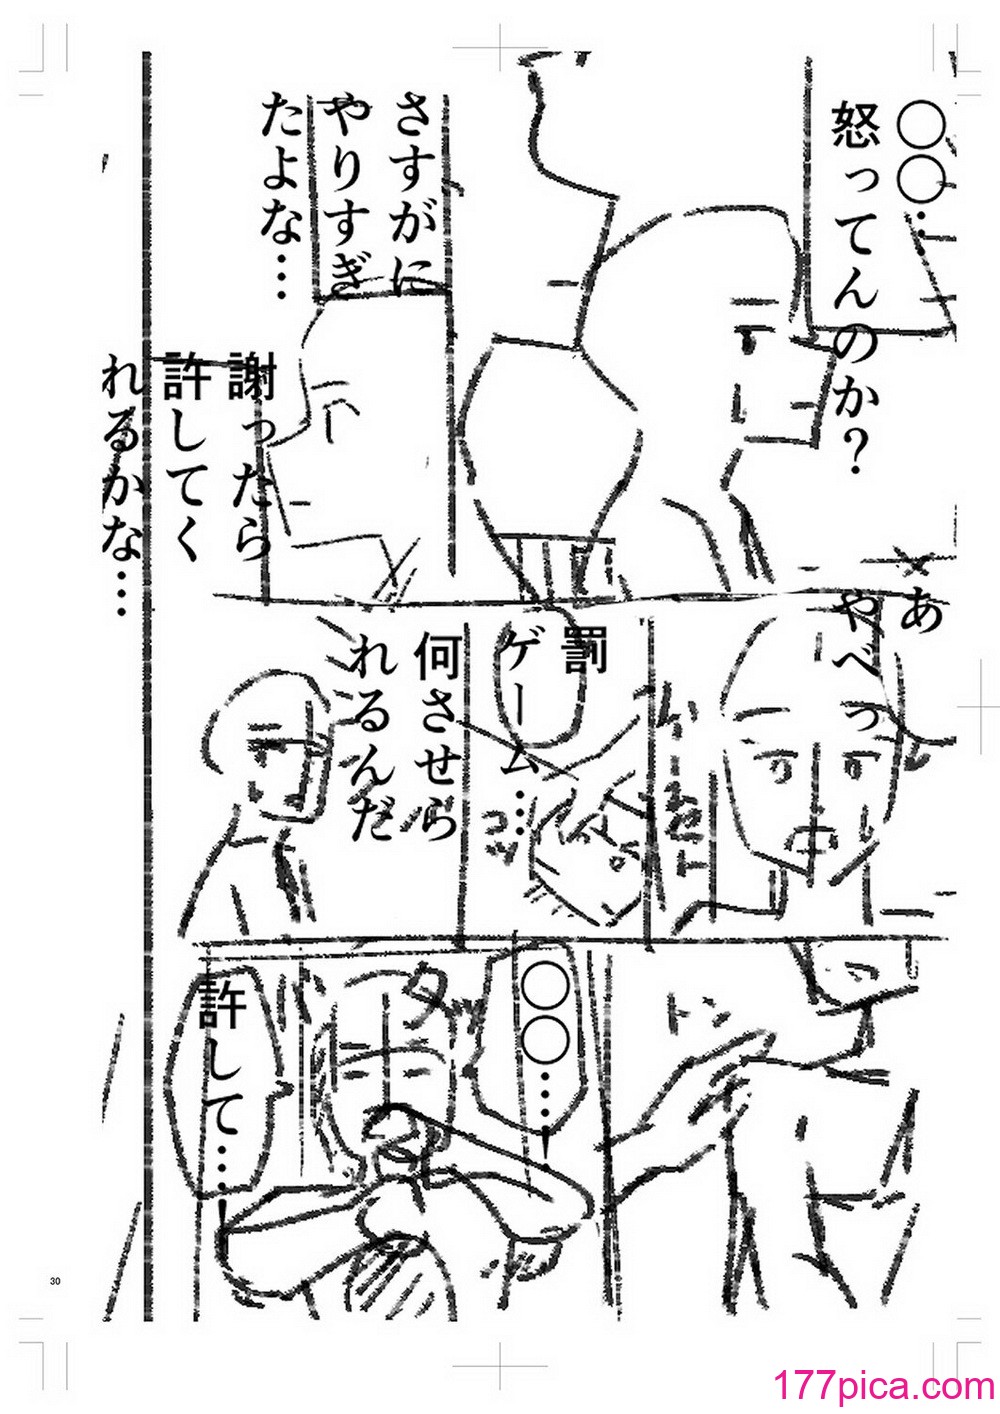 〇〇…
怒ってんのか？
さすがに
やりすぎ
たよな…
謝ったら
許してく
れるかな…
あ
やべっ
罰
ゲーム…
何させら
れるんだ
トン
〇〇…
ダッ
許して…
30
177pica.com